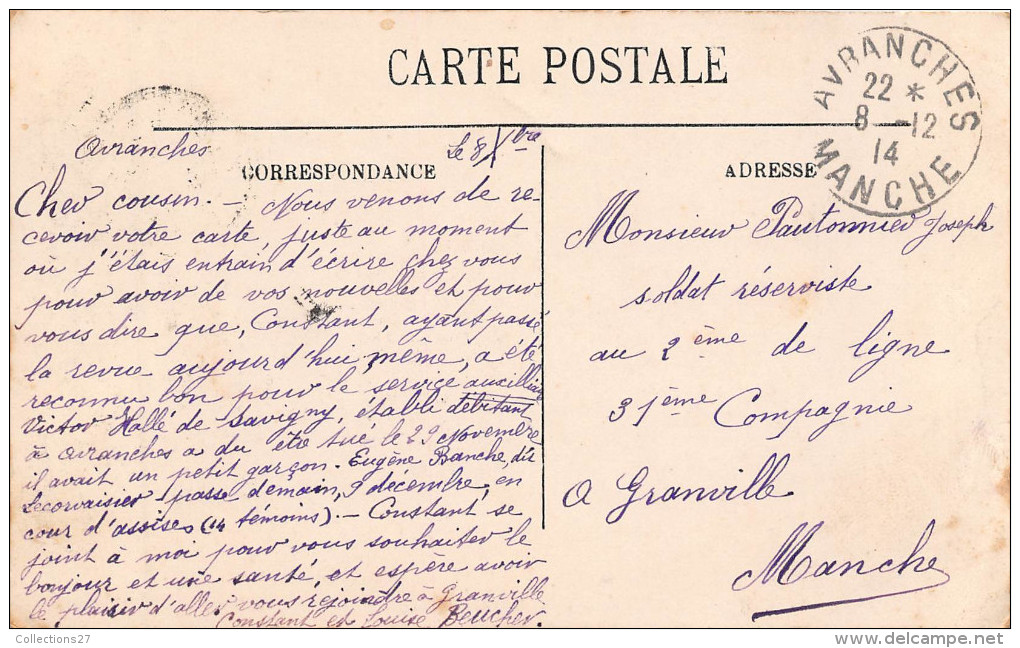 CARTE POSTALE
AVRANCHES
22 *
8 - 12
14
MANCHE
Avranches le 8 Xbre
CORRESPONDANCE
ADRESSE
Cher cousin. — Nous venons de re-
cevoir votre carte, juste au moment
où j'étais entrain d'écrire chez vous
pour avoir de vos nouvelles et pour
vous dire que, Constant, ayant passé
la revue aujourd'hui même, a été
reconnu bon pour le service auxilliaire
Victor Hallé de Savigny, établi débitant
à Avranches a du être tué le 29 Novembre
il avait un petit garçon. Eugène Banche, dis
passe demain, 9 décembre, en
cour d'assises (14 témoins). — Constant se
joint à moi pour vous souhaiter le
bonjour et une santé, et espère avoir
le plaisir d'aller vous rejoindre à Granville
Constant et Louise Beucher.
Monsieur Pautonnier Joseph
soldat réserviste
au 2ème de ligne
31ème Compagnie
à Granville
Manche
Collections27
www.delcampe.net